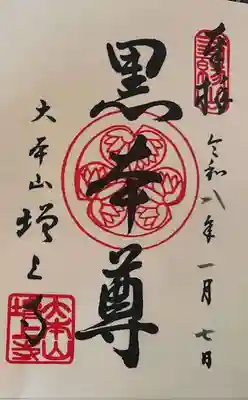 奉拝
令和八年一月七日
黒本尊
大本山増上寺
大本山
増上寺